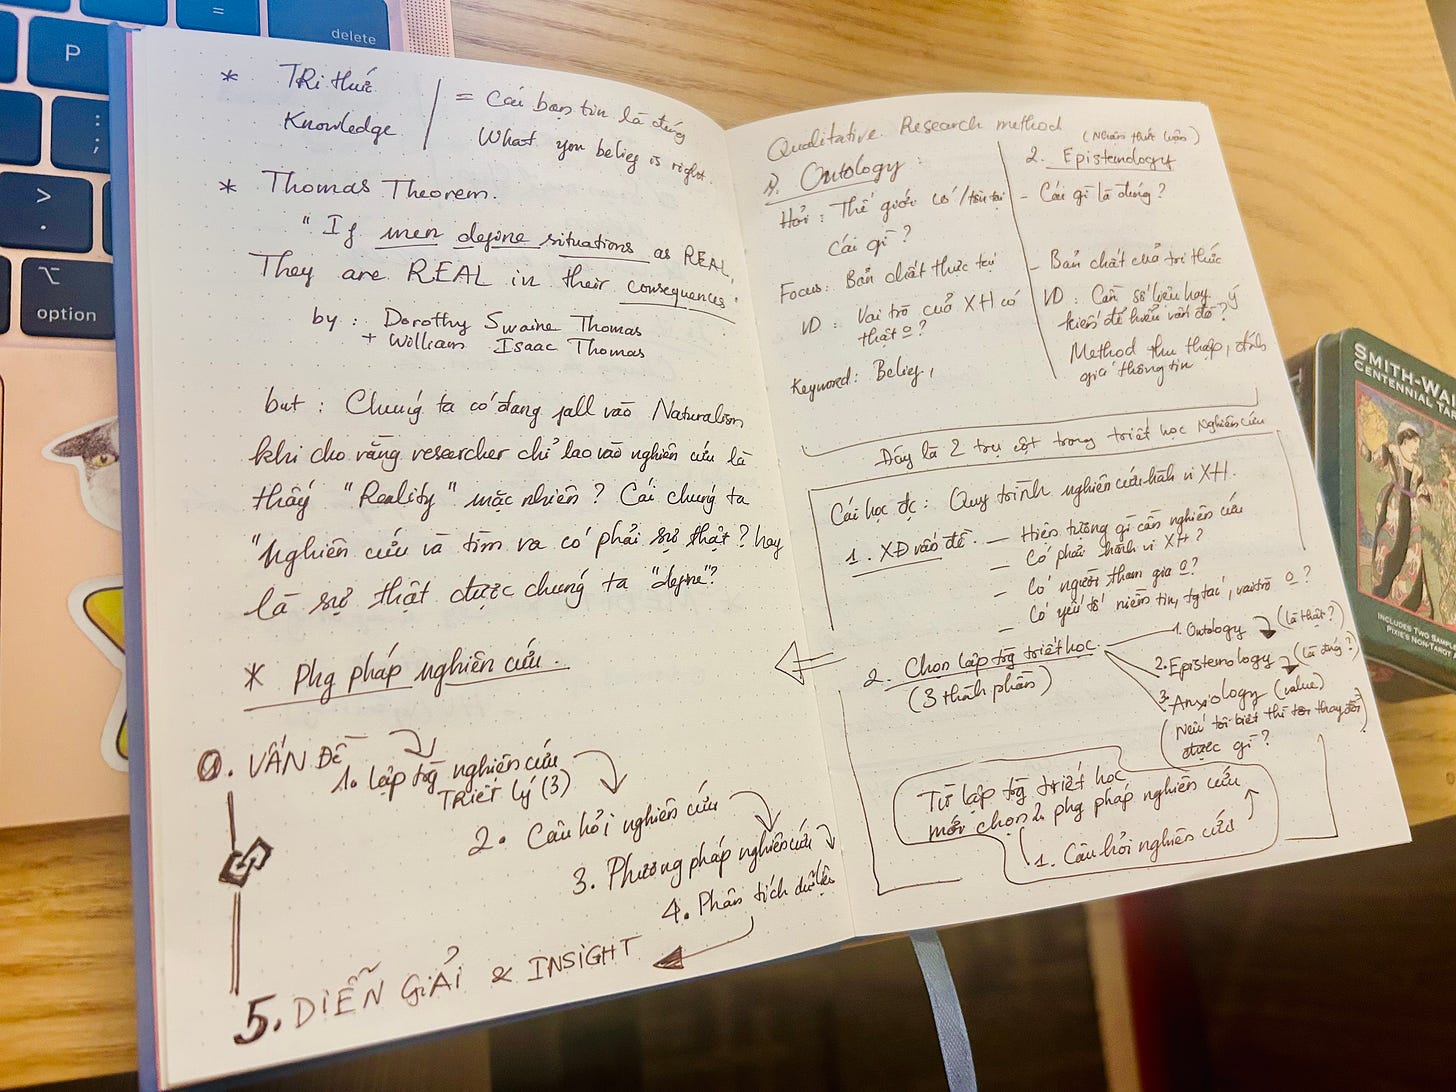 P
=
delete
;
:
>
.
option
* TRi thức
Knowledge
= Cái bạn tin là đúng
What you belief is right.
* Thomas Theorem.
"If men define situations as REAL,
They are REAL in their consequences.
by : Dorothy Swaine Thomas
+ William Isaac Thomas
but : Chúng ta có đang fall vào Naturalism
khi cho rằng researcher chỉ lao vào nghiên cứu là
thấy "Reality" mặc nhiên ? Cái chúng ta
"nghiên cứu và tìm ra có phải sự thật ? hay
là sự thật được chúng ta "define"?
* Phg pháp nghiên cứu.
0. VẤN ĐỀ
1. lập trg nghiên cứu
TRiết lý (3)
2. Câu hỏi nghiên cứu
3. Phương pháp nghiên cứu
4. Phân tích dữ liệu
5. DIỄN GIẢI & INSIGHT
Qualitative Research method
1. Ontology :
Hỏi : Thế giới có/tồn tại
cái gì ?
Focus : Bản chất thực tại
VD : Vai trò của XH có
thật o ?
Keyword : Belief,
(Nhận thức luận)
2. Epistemology
- Cái gì là đúng ?
- Bản chất của tri thức
VD : Cần số liệu hay ý
kiến để hiểu vấn đề ?
Method thu thập, đánh
giá thông tin
Đây là 2 trụ cột trong triết học Nghiên cứu
Cái học đc : Quy trình nghiên cứu hành vi XH.
1. XĐ vấn đề
- Hiện tượng gì cần nghiên cứu
- Có phải hành vi XH ?
- Có người tham gia o ?
- Có yếu tố niềm tin, tg tác, vai trò o ?
2. Chọn lập trg triết học
(3 thành phần)
1. Ontology (là thật ?)
2. Epistemology (là đúng ?)
3. Anxiology (value)
(Nếu tôi biết thì tôi thay đổi
được gì ?
Từ lập trg triết học
mới chọn 2. phg pháp nghiên cứu
1. Câu hỏi nghiên cứu
SMITH-WAI
CENTENNIAL TA
INCLUDES TWO SAMPLE
PIXIE'S NON-TAROT